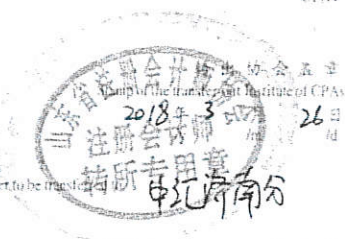 转出协会盖章
Stamp of the transfer-out Institute of CPAs
2018年3月26日
/m /d
山东省注册会计师协会
注册会计师
转所专用章
er to be transferred to
中汇济南分